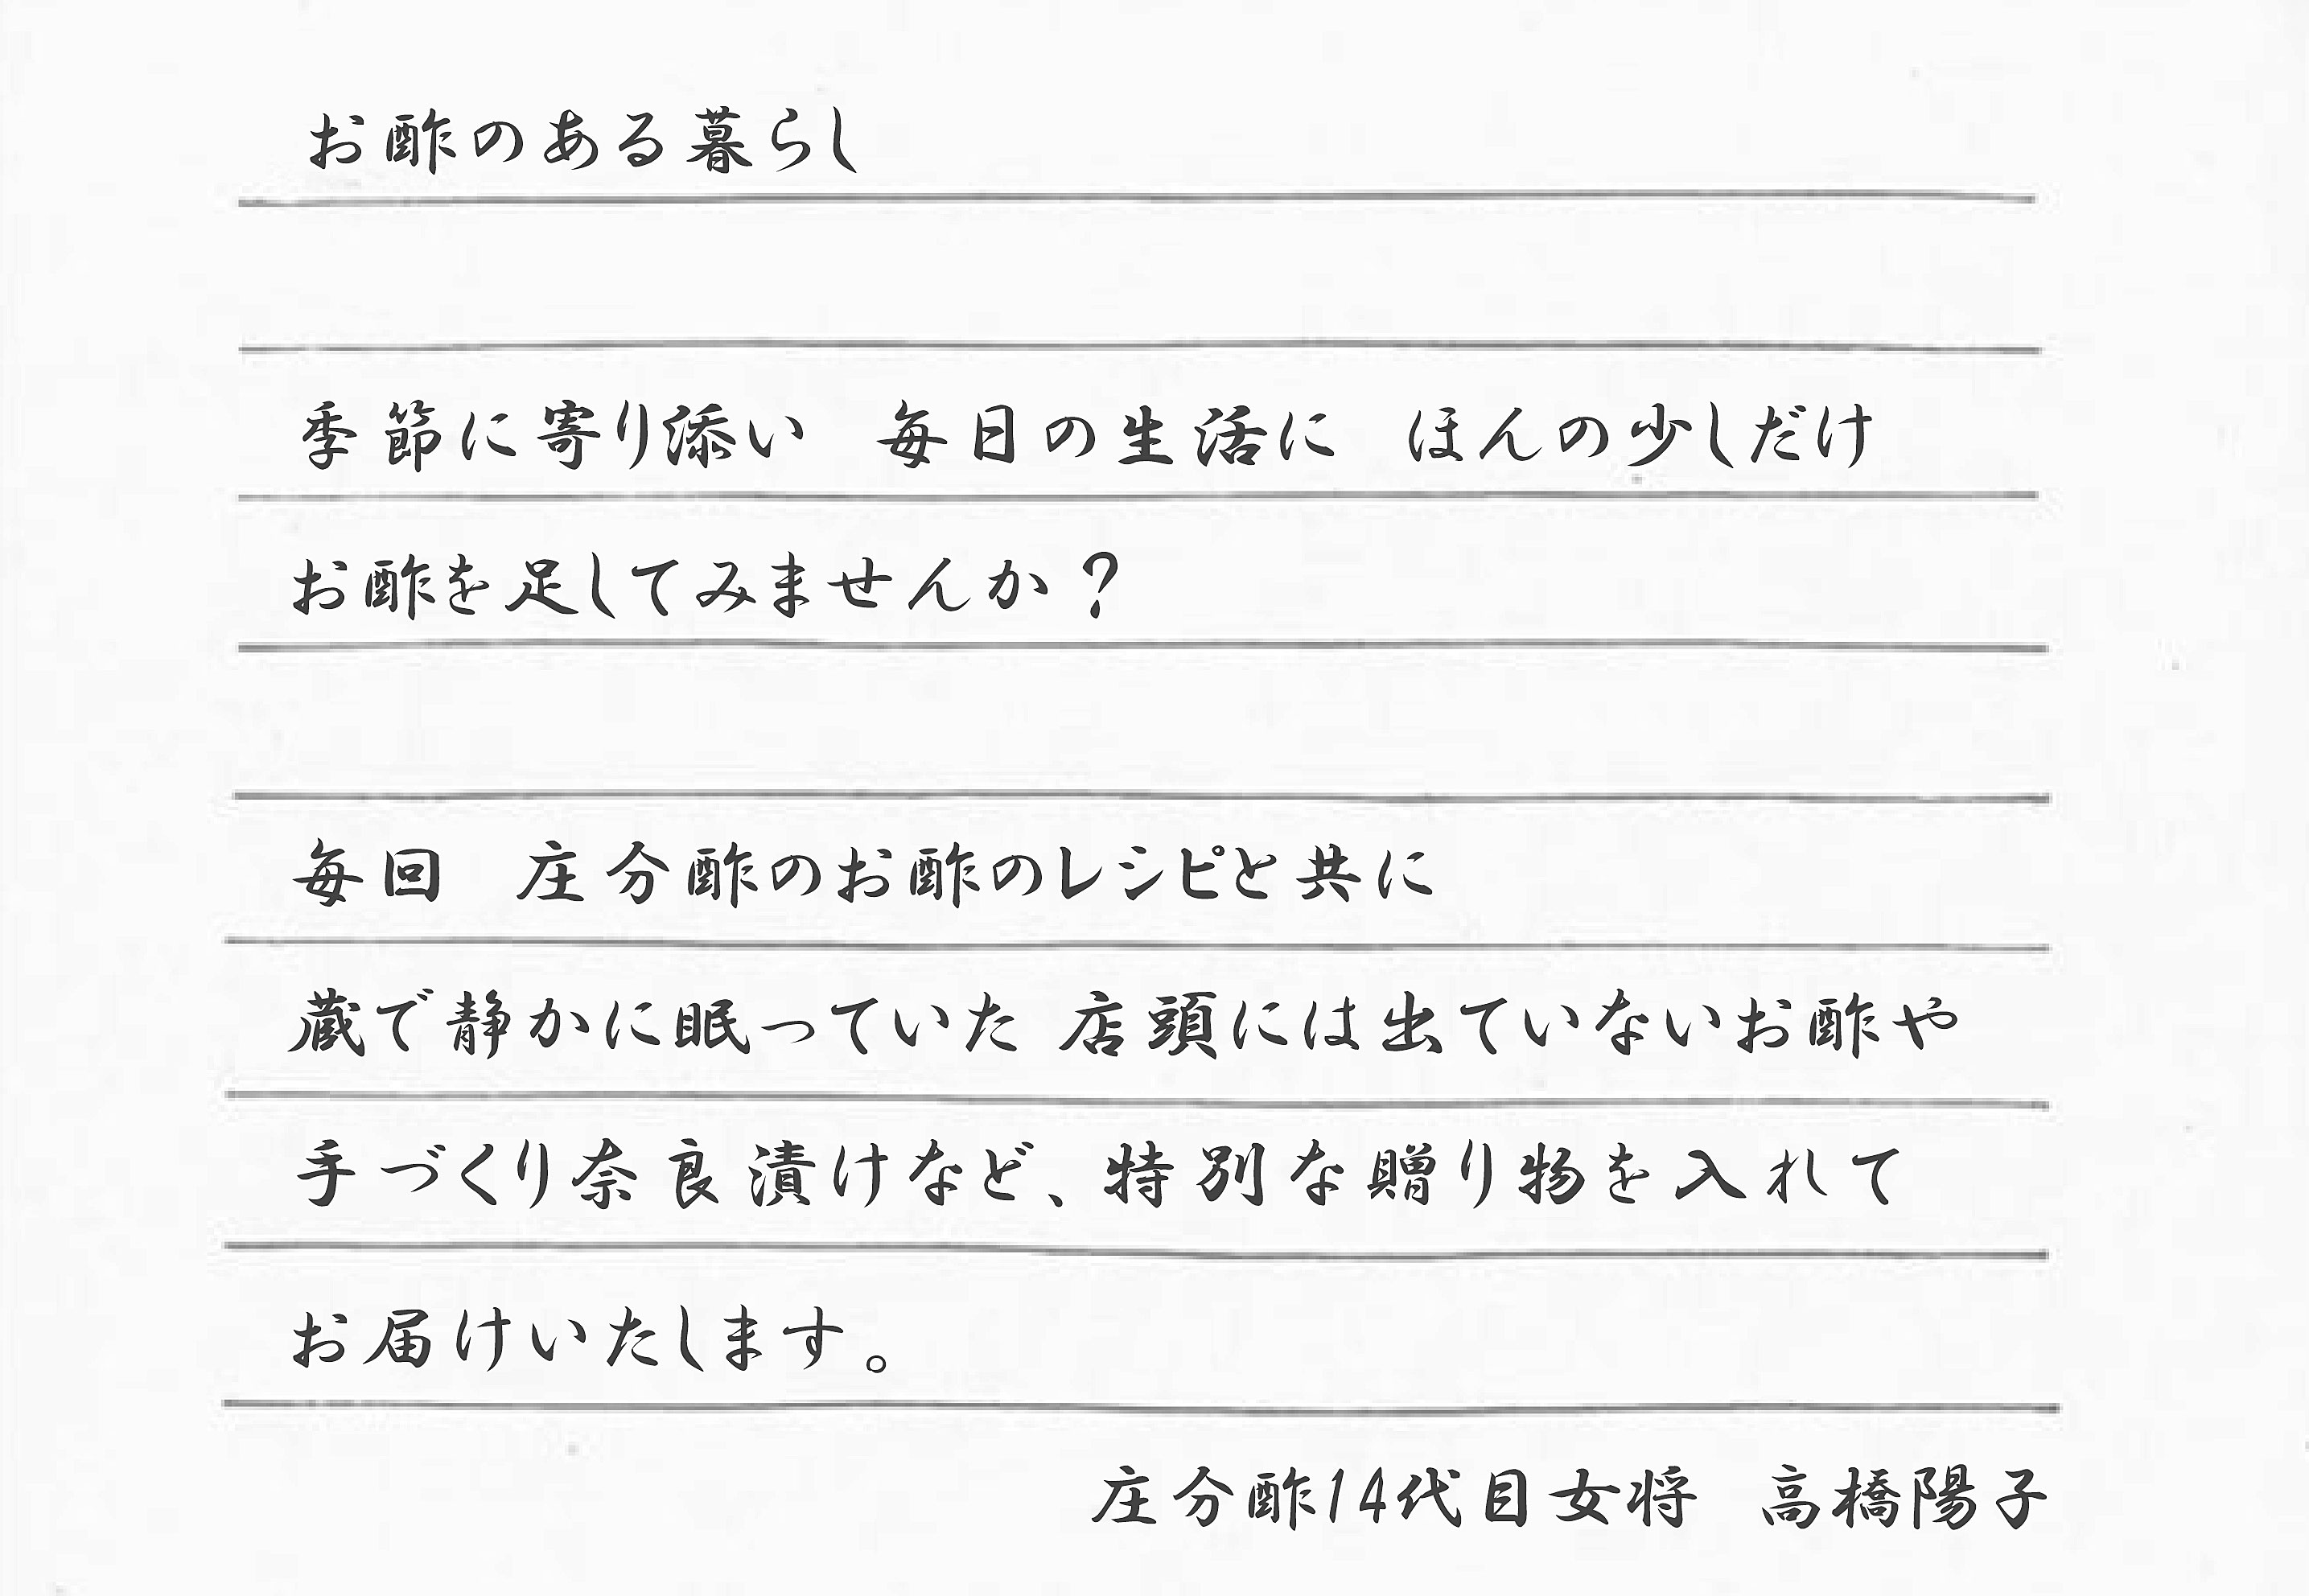 お酢のある暮らし
季節に寄り添い　毎日の生活に　ほんの少しだけ
お酢を足してみませんか？
毎回　庄分酢のお酢のレシピと共に
蔵で静かに眠っていた 店頭には出ていないお酢や
手づくり奈良漬けなど、特別な贈り物を入れて
お届けいたします。
庄分酢14代目女将　高橋陽子